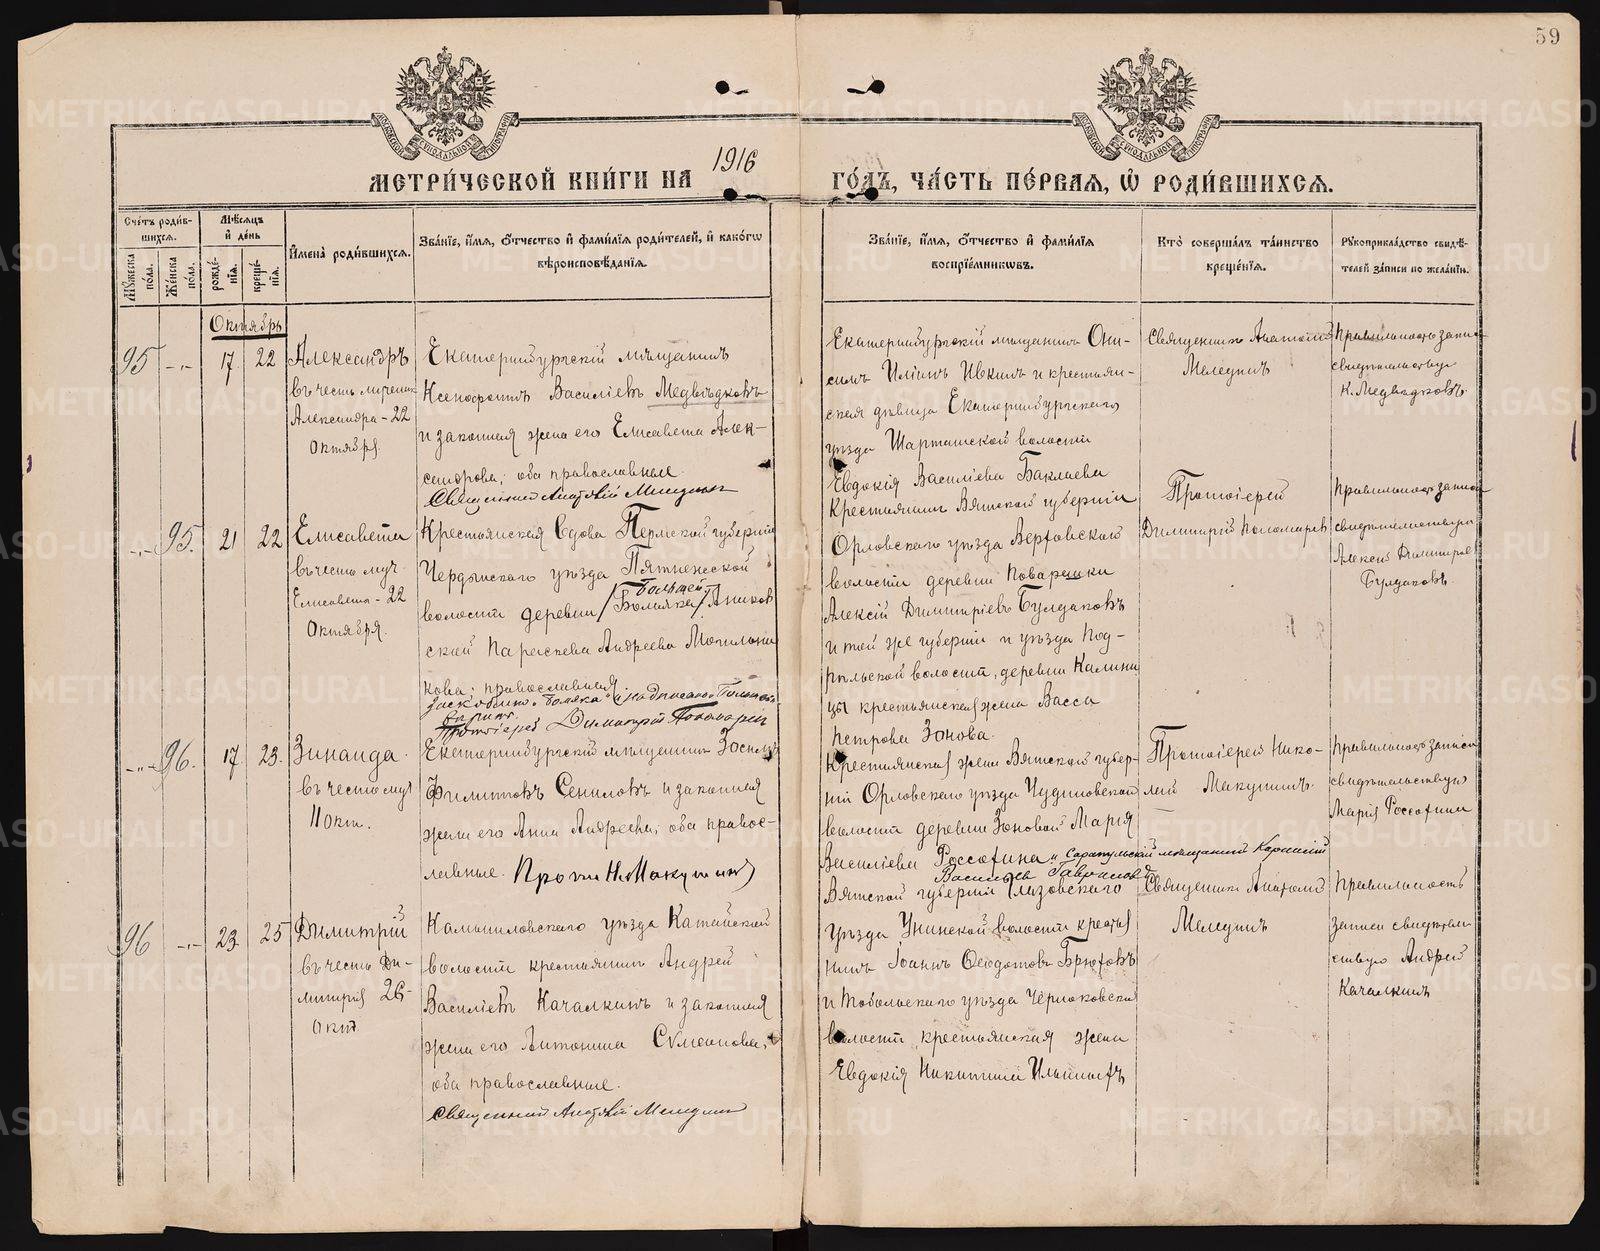 59
МЕТРИ́ЧЕСКОЙ КНИ́ГИ НА 1916 ГО́ДЪ, ЧА́СТЬ ПЕ́РВАЯ, Ѡ РОДИ́ВШИХСЯ.
Сче́тъ роди́в-
шихся.
Мѣ́сяцъ
и де́нь
Мꙋ́жеска по́ла.
Же́нска по́ла.
рожде́-
нїя.
креще́-
нїя.
И҆мена̀ роди́вшихся.
Зва́нїе, и҆́мя, ѻ҆́тчество и҆ фами́лїя роди́телей, и҆ како́гѡ
вѣроисповѣ́данїя.
Зва́нїе, и҆́мя, ѻ҆́тчество и҆ фами́лїя
воспрїе́мникѡвъ.
Кто̀ соверша́лъ та́инство
креще́нїя.
Рꙋкоприкла́дство свидѣ́-
телей за́писи по жела́нїю.
Октябрь
95 -"- 17 22
Александръ
въ честь мученик
Александра - 22
Октября.
Екатеринбургскій мѣщанинъ
Ксенофонтъ Василіевъ Медвѣдковъ
и законная жена его Елисавета Алек-
сандрова; оба православные.
Священникъ Анатолій Мелединъ
Екатеринбургскій мѣщанинъ Они-
симъ Иліинъ Ивкинъ и крестьян-
ская дѣвица Екатеринбургскаго
уѣзда Шарташской волости
Евдокія Василіева Баклаева
Священникъ Анатолій
Мелединъ
Правильность записи
свидѣтельствую
К. Медвѣдковъ
-"- 95. 21 22
Елисавета
въ честь муч.
Елисаветы - 22
Октября.
Крестьянская вдова Пермской губерніи
Чердынского уѣзда Пятинской
волости деревни /Бомяка/ Аников
ской Параскева Андреева Могильни
кова; православная
Протоіерей Димитрій Пономаревъ
Крестьянинъ Вятской губерніи
Орловскаго уѣзда Верховской
волости деревни Поварешки
Алексій Димитріевъ Булдаковъ
и той же губерніи и уѣзда Под-
рѣльской волости, деревни Калини
цы крестьянская жена Васса
Петрова Зонова.
Протоіерей
Димитрій Пономаревъ
Правильность записи
свидѣтельствую
Алексій Димитріев
Булдаковъ
-"- 96. 17 23.
Зинаида
въ честь муч
11 окт.
Екатеринбургскій мѣщанинъ Зосима
Филитовъ Сениловъ и законная
жена его Анна Андреева; оба право-
славные. Прот. Н. Макушинъ
Крестьянская жена Вятской губер-
ніи Орловскаго уѣзда Чудиновской
волости деревни Зоновой Марія
Василіева Россохина и Сарапульскій мѣщанинъ
Василіевъ Гавриловъ
Протоіерей Нико-
лай Макушинъ.
Правильность записи
свидѣтельствую
Марія Россохина
96 -"- 23 25
Димитрій
въ честь Ди-
митрія 26-
окт.
Камышловскаго уѣзда Катайской
волости крестьянинъ Андрей
Василіевъ Качалкинъ и законная
жена его Антонина Симеонова,
оба православные.
Священникъ Анатолій Мелединъ
Вятской губерніи Глазовскаго
уѣзда Унинской волости крестья
нинъ Іоаннъ Ѳеодотовъ Брюховъ
и Тобольскаго уѣзда Черноковской
волости крестьянская жена
Евдокія Никитина Ильиныхъ
Священникъ Анатолій
Мелединъ
Правильность
записи свидѣтель
ствую Андрей
Качалкинъ